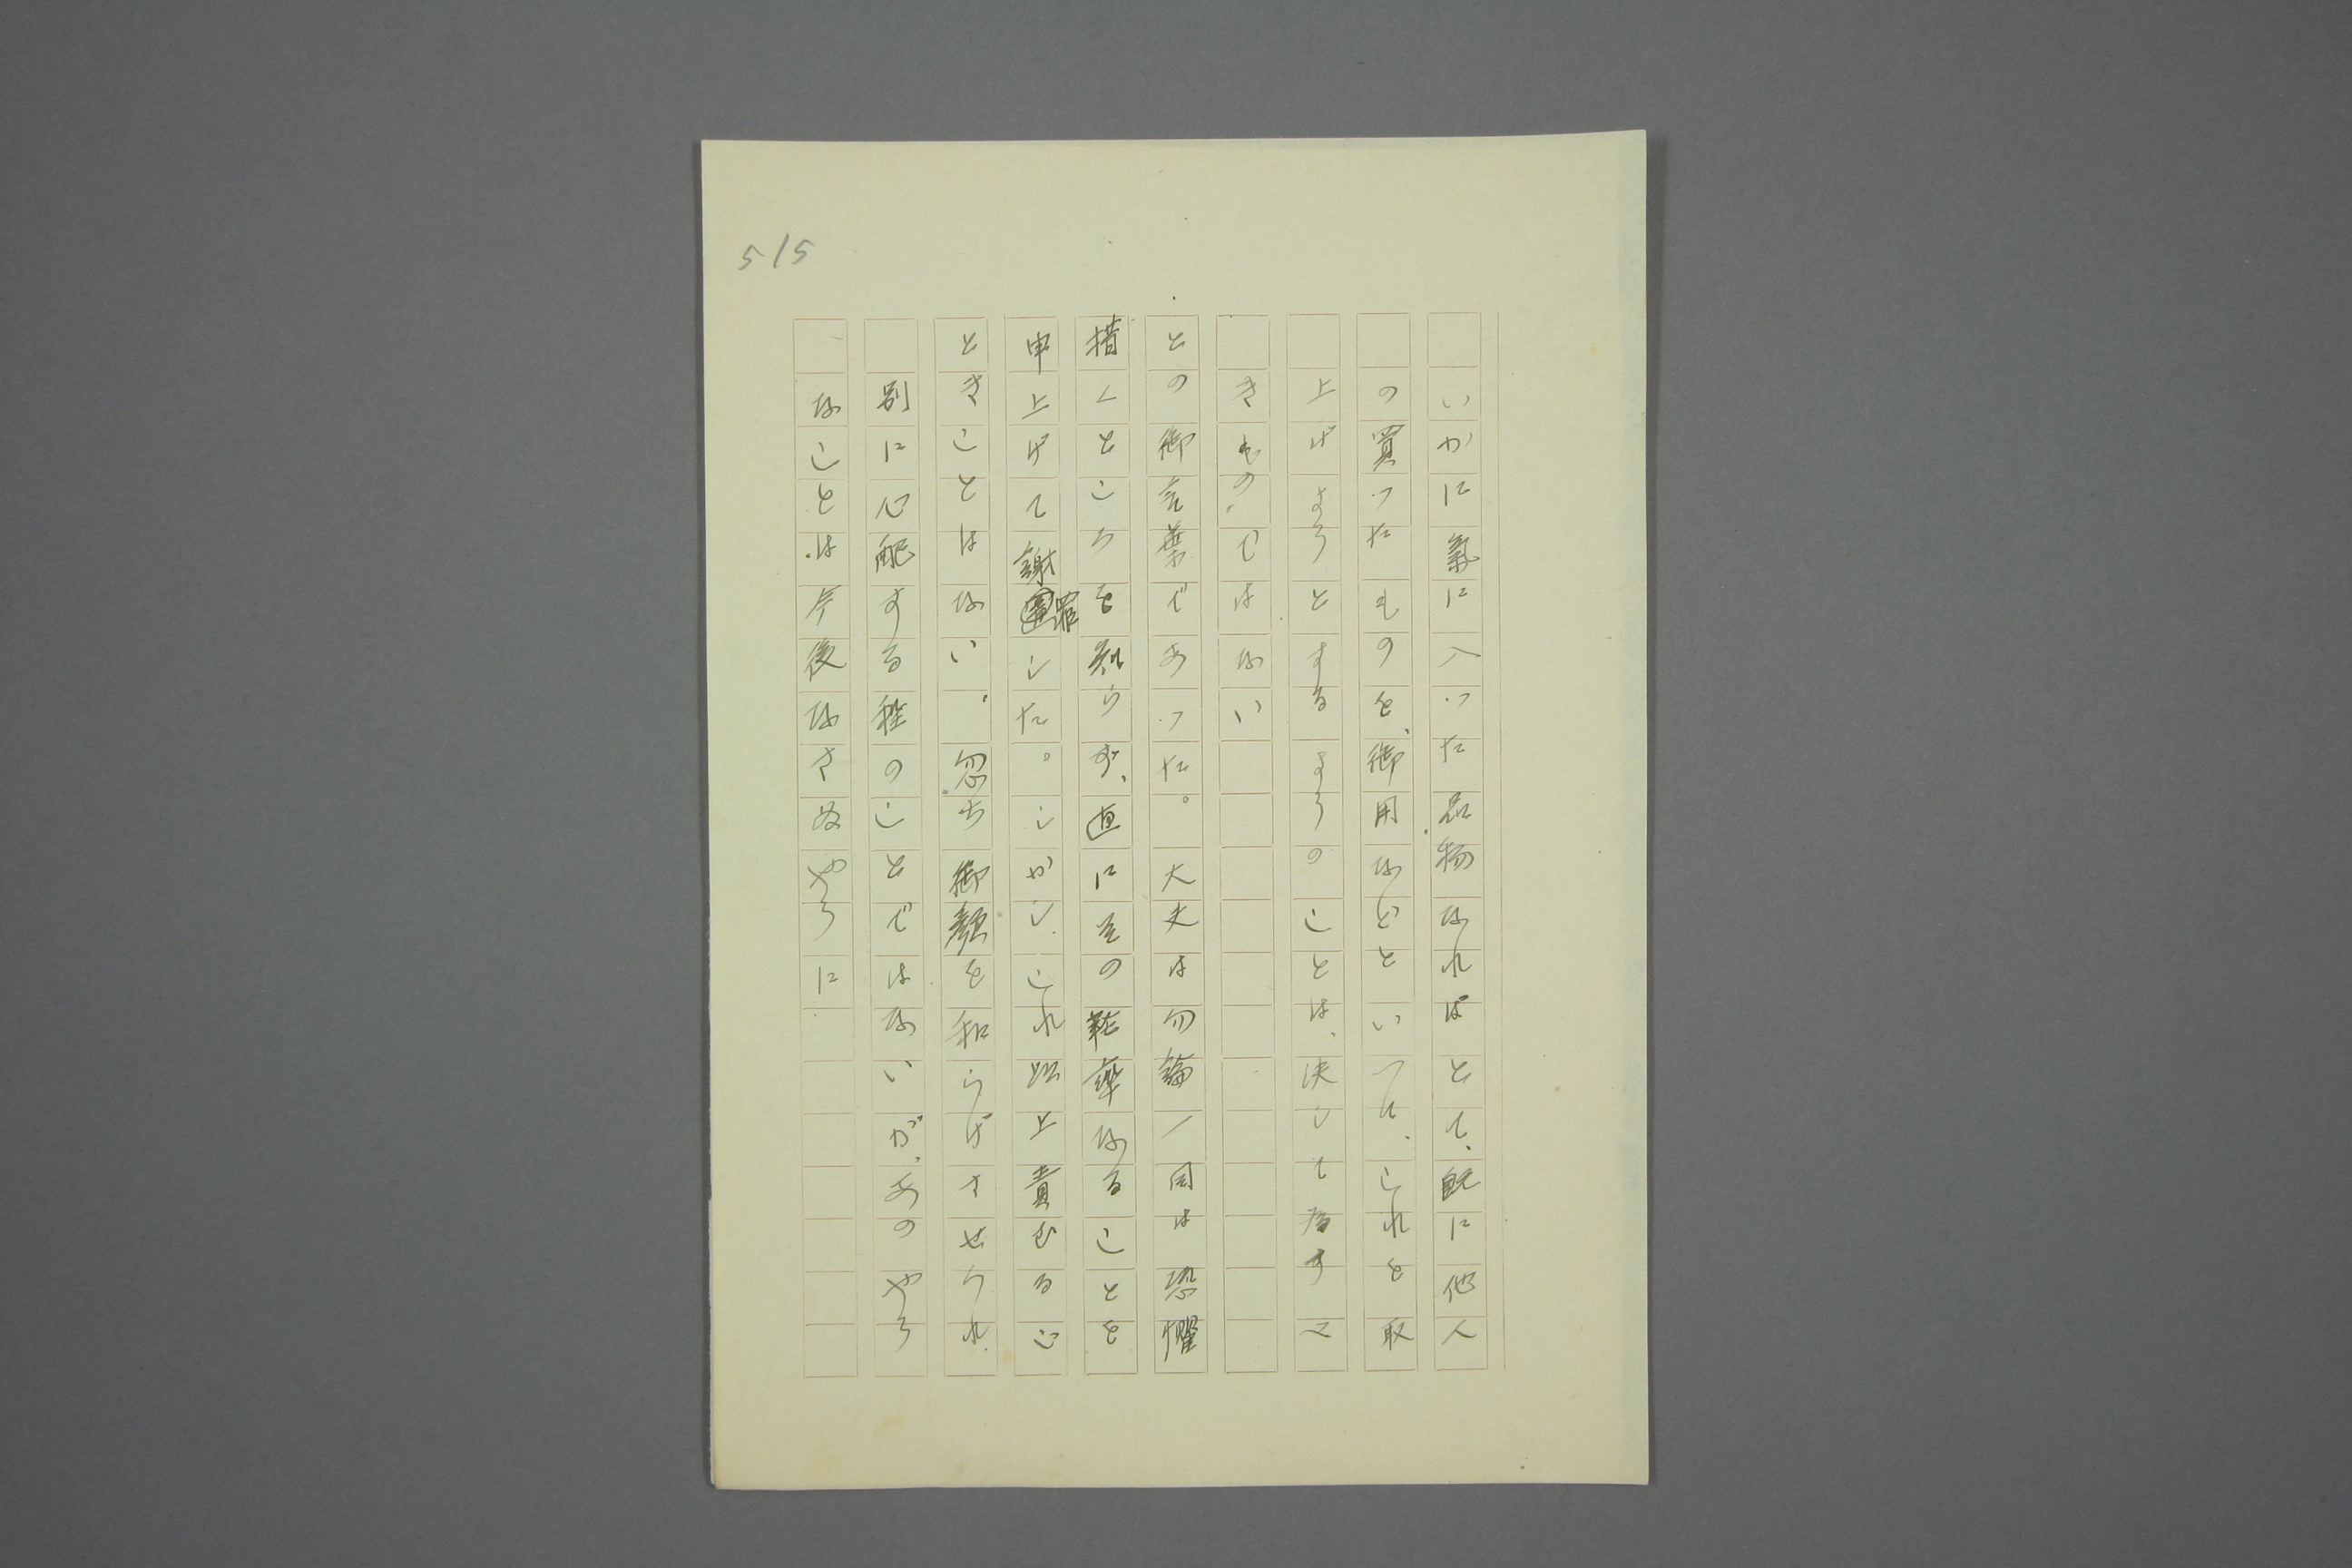 515
いかに氣に入つた品物なればとて、既に他人
の買つたものを、御用などといつて、これを取
上げようとするようのことは、決して為すべ
きものではない
との御言葉であつた。大夫は勿論一同は恐懼
措くところを知らず、直にその輕率なることを
申上げて謝罪した。しかし、これ以上責むるご
ときことはない。忽ち御顏を和らげさせられ
別に心配する程のことではないが、あのやう
なことは今後なさぬやうに